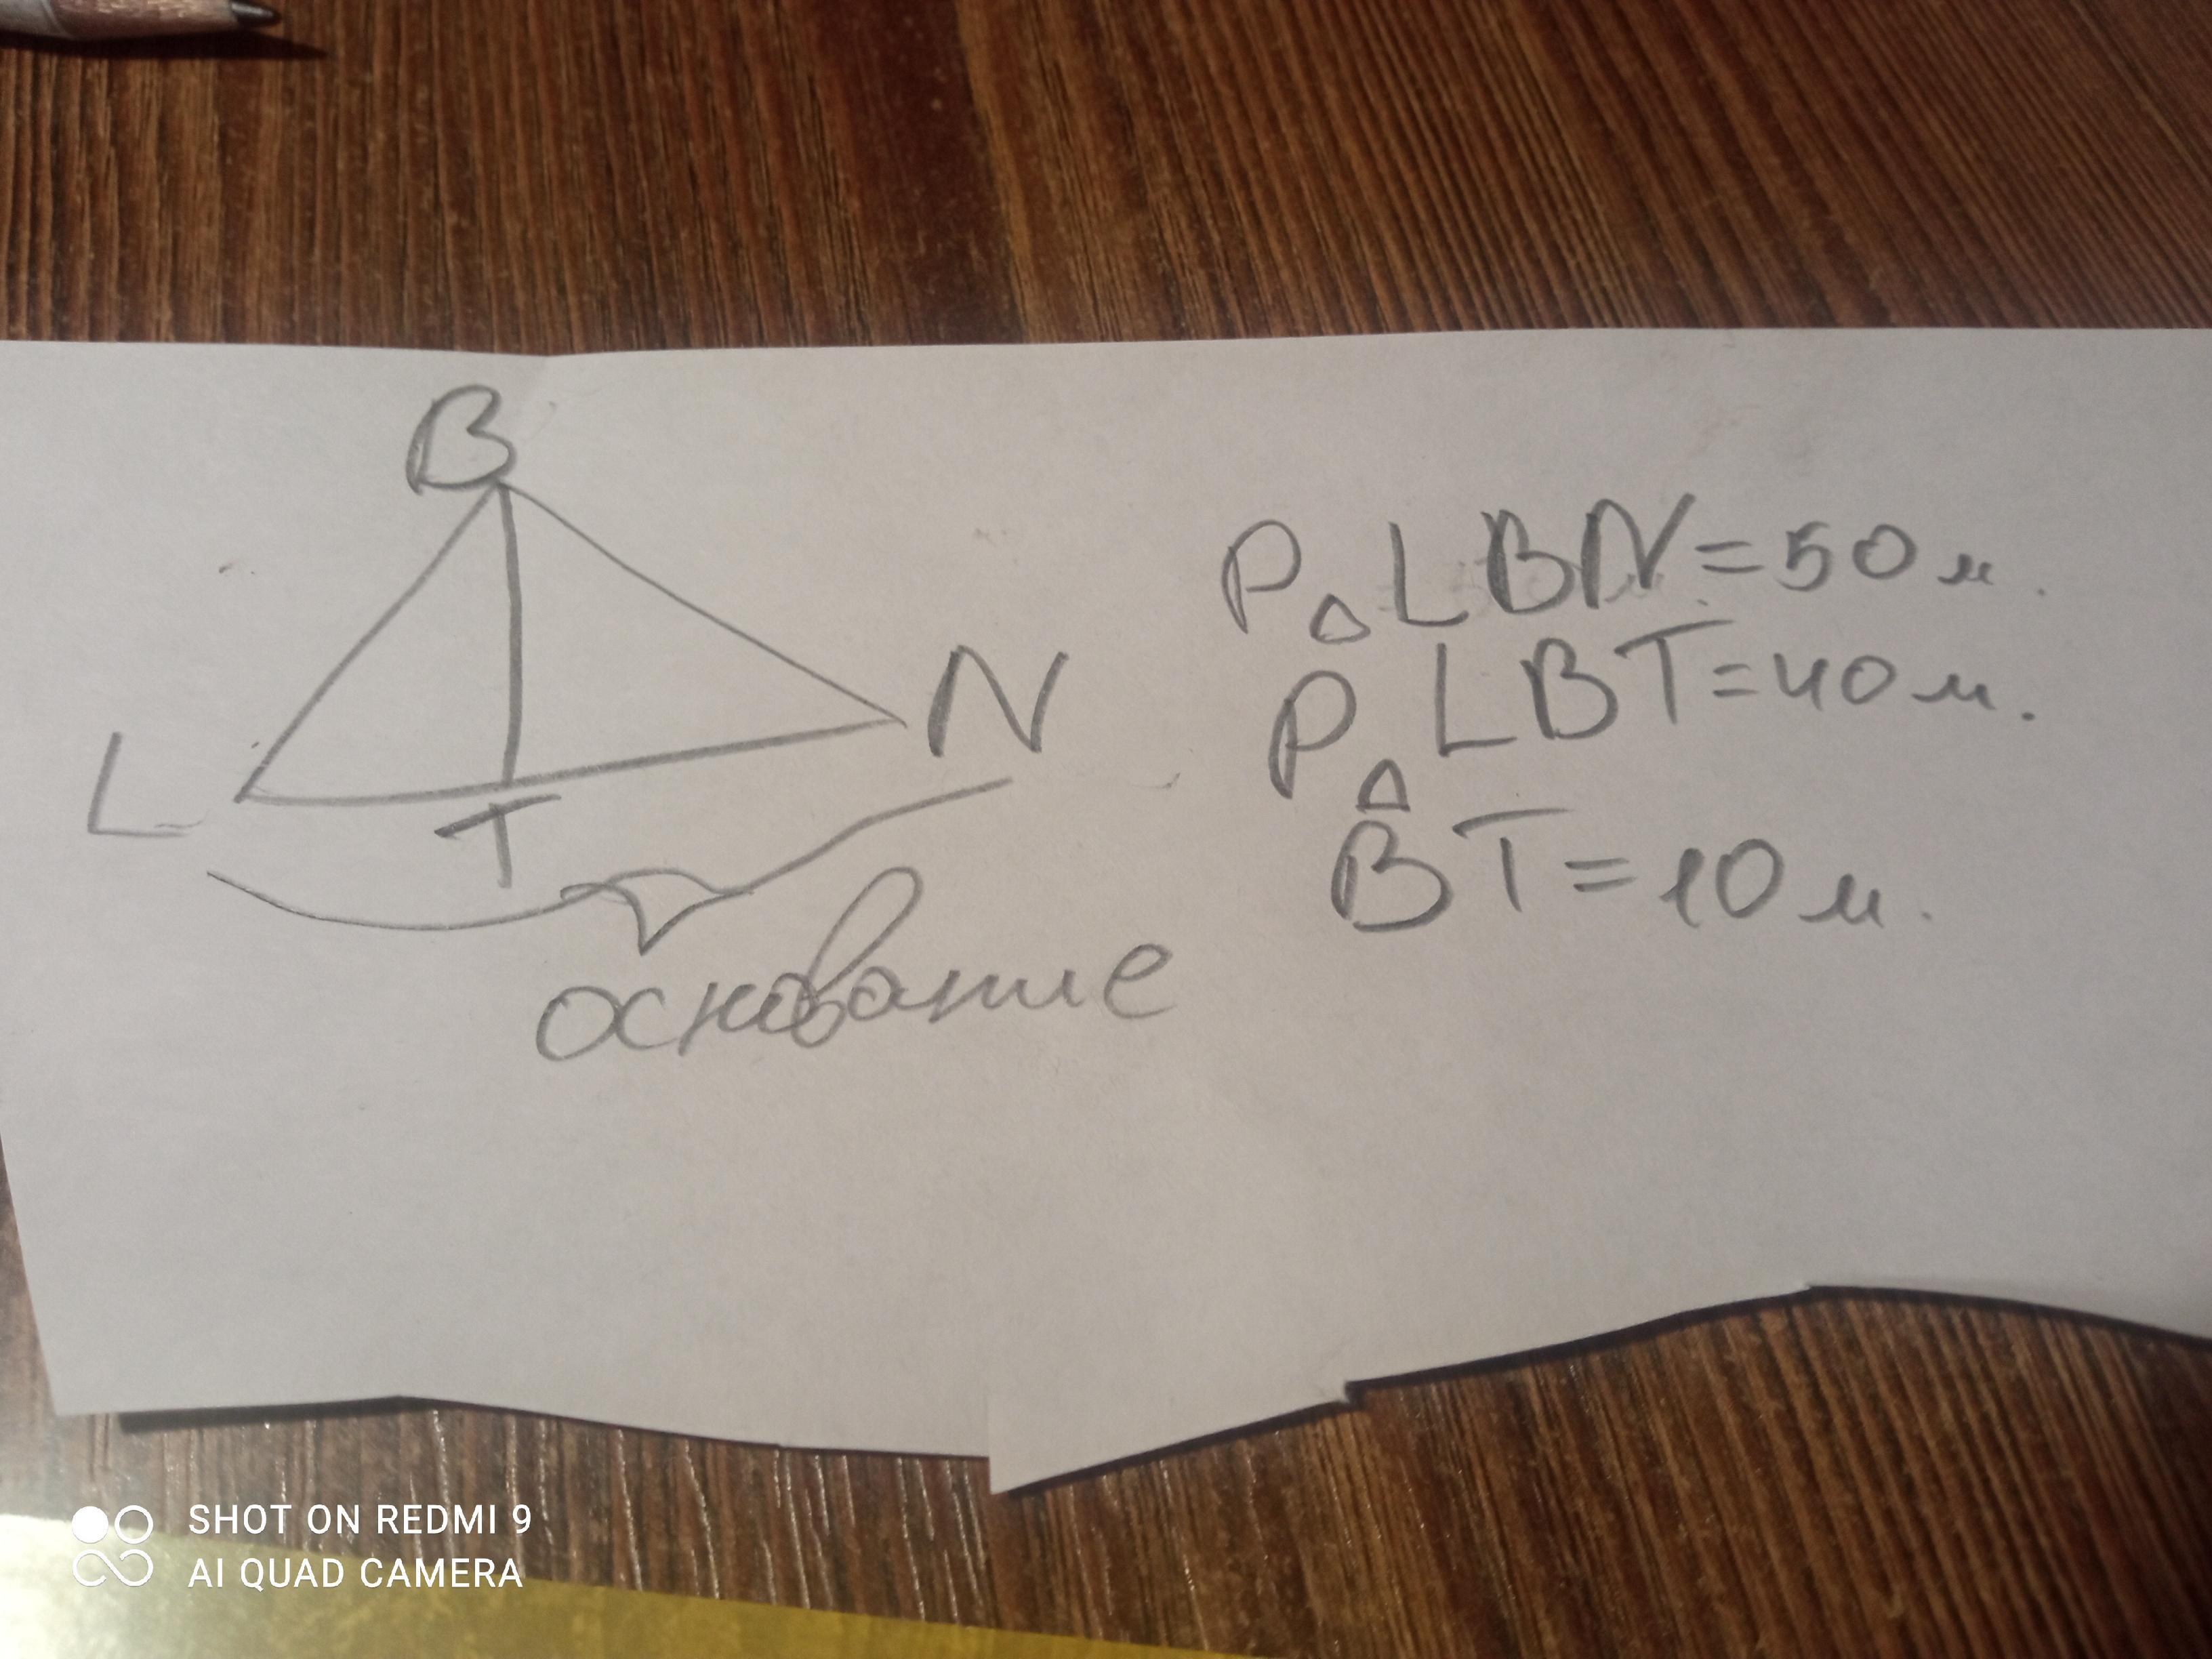 B
L
T
N
основание
P△LBN=50м.
P△LBT=40м.
BT=10м.
SHOT ON REDMI 9
AI QUAD CAMERA